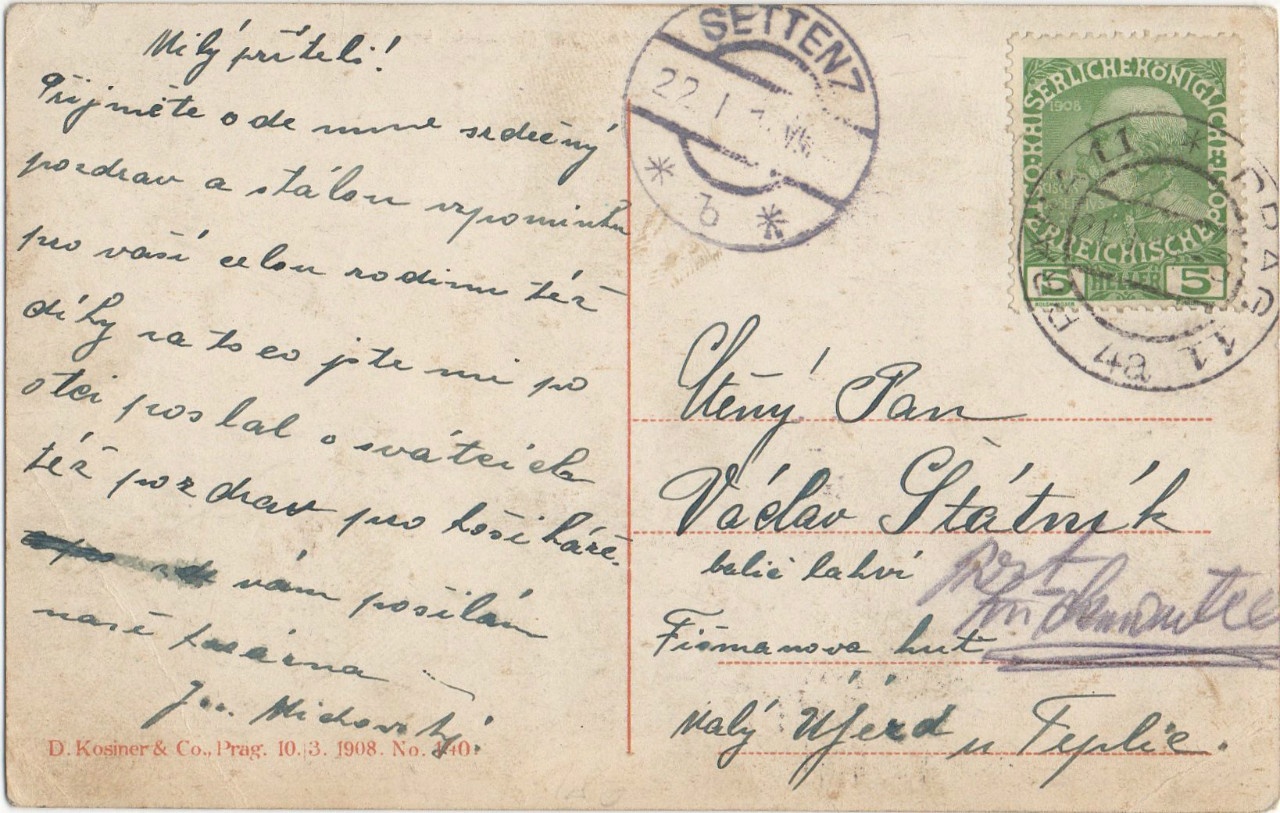 Milý příteli!
Přijměte ode mne srdečný
pozdrav a stálou vzpomínku
pro vaší celou rodinu též
díky za to co jste mi po
otci poslal o svátcích
též pozdrav pro
vám posílám
naše
D. Kosiner & Co., Prag. 10.|3. 1908. No. 140
SETTENZ
22. I
* b *
KAISERLICHEKÖNIGLICHE POST
1908
ÖSTERREICHISCHE
5 HELLER 5
PRAG 11
Ctěný Pan
Václav Štátník
balič lahví
Fišmanova hut
Malý Ujezd u Teplic.